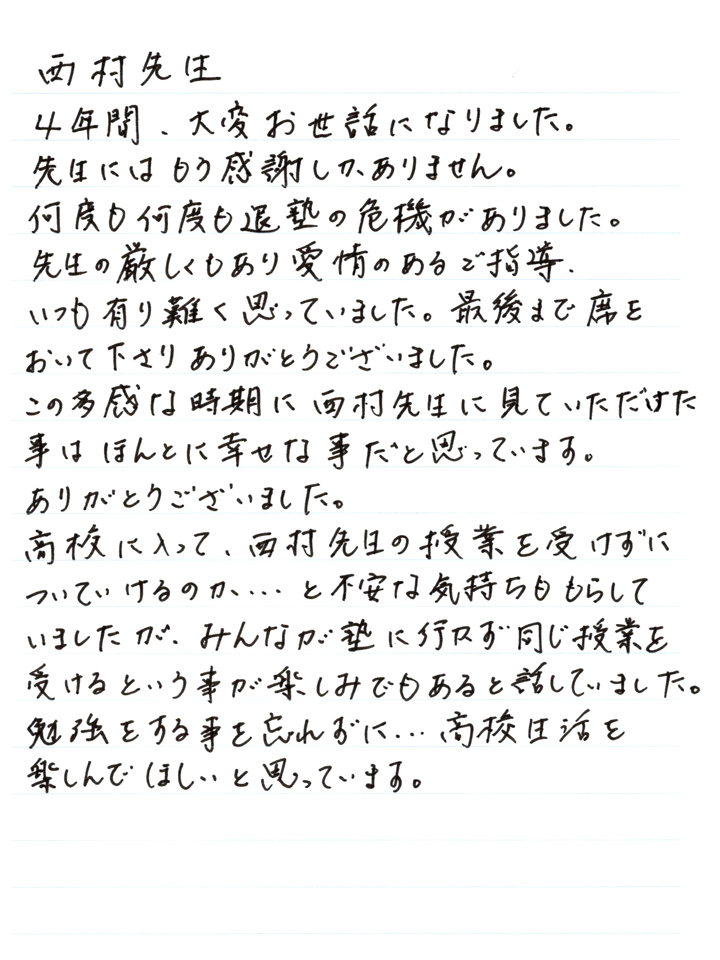 西村先生
4年間、大変お世話になりました。
先生にはもう感謝しかありません。
何度も何度も退塾の危機がありました。
先生の厳しくもあり愛情のあるご指導、
いつも有り難く思っていました。最後まで席を
おいて下さりありがとうございました。
この多感な時期に西村先生に見ていただけた
事はほんとに幸せな事だと思っています。
ありがとうございました。
高校に入って、西村先生の授業を受けずに
ついていけるのか、…と不安な気持ちももらして
いましたが、みんなが塾に行かず同じ授業を
受けるという事が楽しみでもあると話していました。
勉強をする事を忘れずに…高校生活を
楽しんでほしいと思っています。